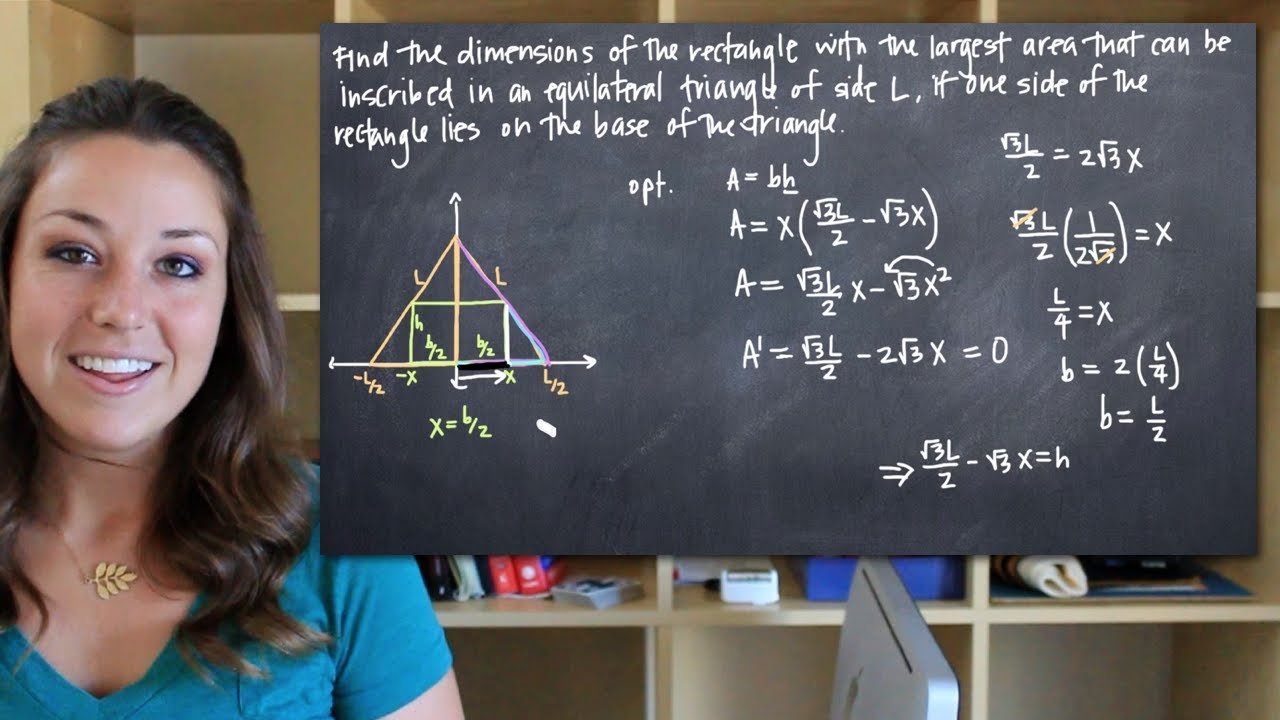 Find the dimensions of the rectangle with the largest area that can be
inscribed in an equilateral triangle of side L, if one side of the
rectangle lies on the base of the triangle.
opt.
L
L
h
b/2
b/2
-L/2
-x
x
L/2
x = b/2
A = bh
A = x(√3L/2 - √3x)
A = √3L/2 x - √3x²
A' = √3L/2 - 2√3x = 0
⇒ √3L/2 - √3x = h
√3L/2 = 2√3x
√3L/2 (1/2√3) = x
L/4 = x
b = 2(L/4)
b = L/2